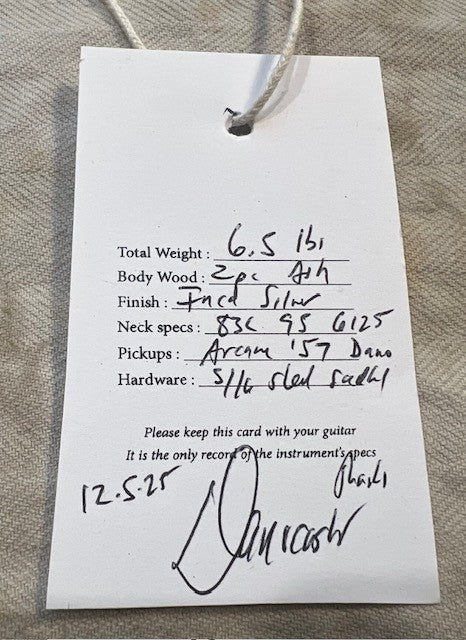 Total Weight : 6.5 lbs
Body Wood : 2pc Ash
Finish : Inca Silver
Neck specs : 83C 95 6125
Pickups : Arcane '57 Dano
Hardware : steel saddl
Please keep this card with your guitar
It is the only record of the instrument's specs
12.5.25 Thanks
Danocaster